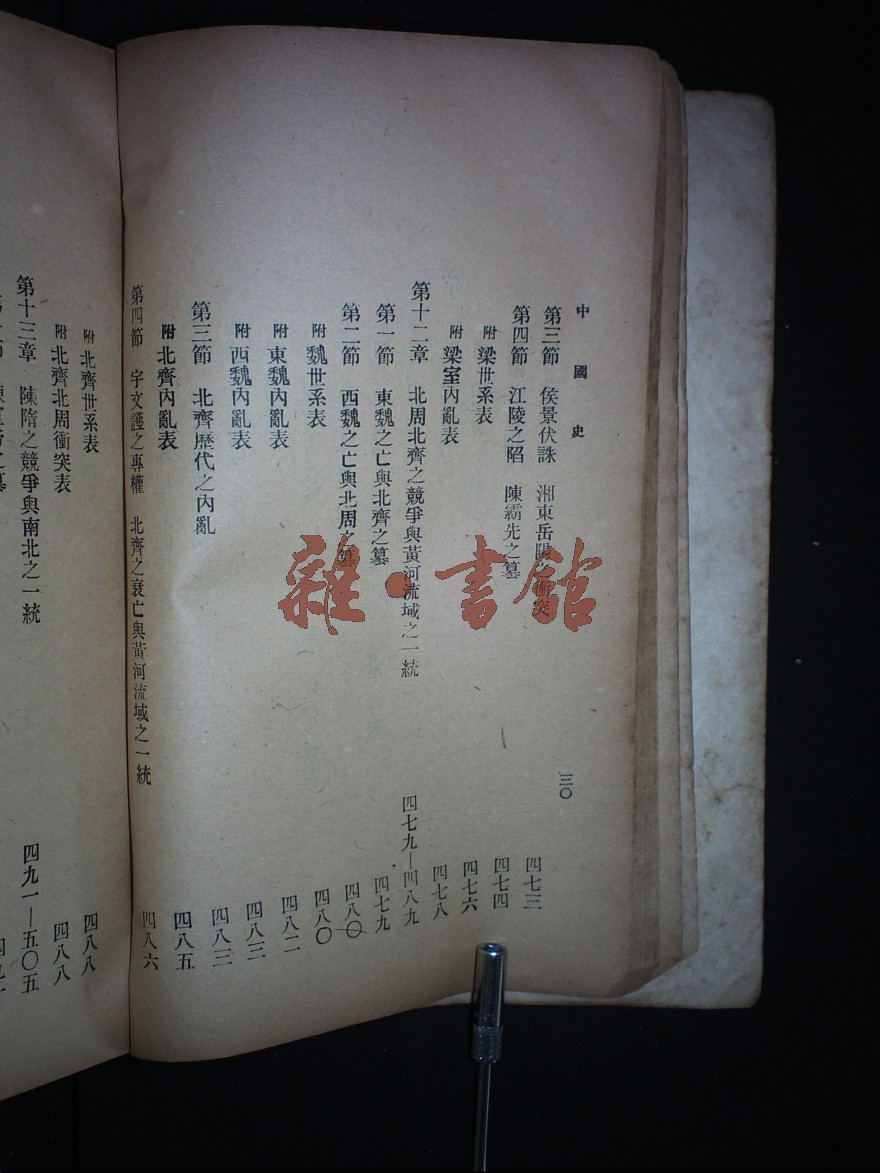 中國史
三〇
第三節 侯景伏誅 湘東岳陽之衝突 四七三
第四節 江陵之陷 陳霸先之篡 四七四
附 梁世系表 四七六
附 梁室內亂表 四七八
第十二章 北周北齊之競爭與黃河流域之一統 四七九—四八九
第一節 東魏之亡與北齊之篡 四七九
第二節 西魏之亡與北周之篡 四八〇
附 魏世系表 四八〇
附 東魏內亂表 四八二
附 西魏內亂表 四八三
第三節 北齊歷代之內亂 四八三
附 北齊內亂表 四八五
第四節 宇文護之專權 北齊之衰亡與黃河流域之一統 四八六
附 北齊世系表 四八八
附 北齊北周衝突表 四八八
第十三章 陳隋之競爭與南北之一統 四九一—五〇五
雜·書館